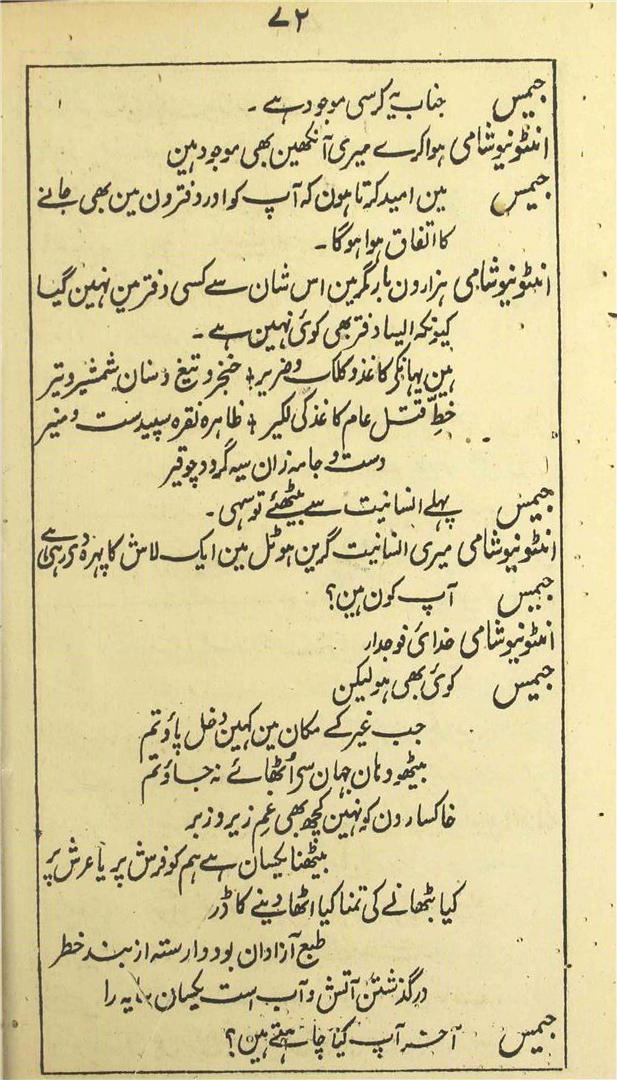 ۷۲
جیمس جناب یہ کرسی موجود ہے ۔
انٹونیو شامی ہوا کرے میری آنکھین بھی موجود ہین
جیمس مین امید کرتا ہون کہ آپ کو اور دفترون مین بھی جانے
کا اتفاق ہوا ہوگا ۔
انٹونیو شامی ہزارون بار مگر مین اس شان سے کسی دفتر مین نہین گیا
کیونکہ ایسا دفتر بھی کوئی نہین ہے ۔
ہین یہان کاغذ و کلک و ضریر خنجر و تیغ و سنان شمشیر و تیر
خطِّ قتل عام کاغذ کی لکیر ظاہرہ نقرہ سپیدست و منیر
دست و جامہ زان سیہ گردد چو قیر
جیمس پہلے انسانیت سے بیٹھئے تو سہی ۔
انٹونیو شامی میری انسانیت گرین ہوٹل مین ایک لاش کا پہرہ دی رہی ہے
جیمس آپ کون ہین ؟
انٹونیو شامی خدائی فوجدار
جیمس کوئی بھی ہو لیکن
جب غیر کے مکان مین کہین دخل پاؤ تم
بیٹھو وہان جہان سے اُٹھائے نہ جاؤ تم
خاکسارون کو نہین کچھ بھی غم زیر و زبر
بیٹھنا یکسان ہے ہم کو فرش پر یا عرش پر
کیا بٹھانے کی تمنا کیا اٹھا دینے کا ڈر
طبع آزادان بود وارستہ از بند خطر
در گذشتن آتش و آب است یکسان سایہ را
جیمس آخر آپ کیا چاہتے ہین ؟